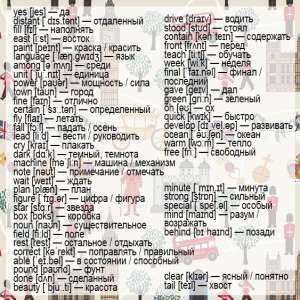 yes [jes] — да
distant [ˈdɪs.tənt] — отдаленный
fill [fɪl] — наполнять
east [iːst] — восток
paint [peɪnt] — краска / красить
language [ˈlæŋ.gwɪdʒ] — язык
among [əˈmʌŋ] — среди
unit [ˈjuː.nɪt] — единица
power [paʊər] — мощность / сила
town [taʊn] — город
fine [faɪn] — отлично
certain [ˈsɜː.tən] — определенный
fly [flaɪ] — летать
fall [fɔːl] — падать / осень
lead [liːd] — вести / руководить
cry [kraɪ] — плакать
dark [dɑːk] — темный, темнота
machine [məˈʃiːn] — машина / механизм
note [nəʊt] — примечание / отмечать
wait [weɪt] — ждать
plan [plæn] — план
figure [ˈfɪg.ər] — цифра / фигура
star [stɑːr] — звезда
box [bɒks] — коробка
noun [naʊn] — существительное
field [fiːld] — поле
rest [rest] — остальное / отдыхать
correct [kəˈrekt] — поправлять / правильный
able [ˈeɪ.bəl] — в состоянии / способный
pound [paʊnd] — фунт
done [dʌn] — сделанный
beauty [ˈbjuː.ti] — красота
drive [draɪv] — водить
stood [stʊd] — стоял
contain [kənˈteɪn] — содержать
front [frʌnt] — перед
teach [tiːtʃ] — обучать
week [wiːk] — неделя
final [ˈfaɪ.nəl] — финал /
последний
gave [geɪv] — дал
green [griːn] — зеленый
oh [əʊ] — ох
quick [kwɪk] — быстро
develop [dɪˈvel.əp] — развивать
ocean [ˈəʊ.ʃən] — океан
warm [wɔːm] — тепло
free [friː] — свободный
minute [ˈmɪn.ɪt] — минута
strong [strɒŋ] — сильный
special [ˈspeʃ.əl] — особый
mind [maɪnd] — разум
возражать
behind [bɪˈhaɪnd] — позади
clear [klɪər] — ясный / понятно
tail [teɪl] — хвост